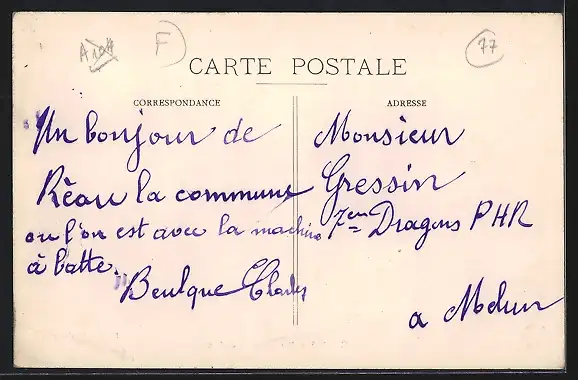 F
77
CARTE POSTALE
CORRESPONDANCE
ADRESSE
Un bonjour de
Réau la commune
ou l'on est avec la machine
à batte.
Beulque Charles
Monsieur
Gressin
7em Dragons PHR
a Melun